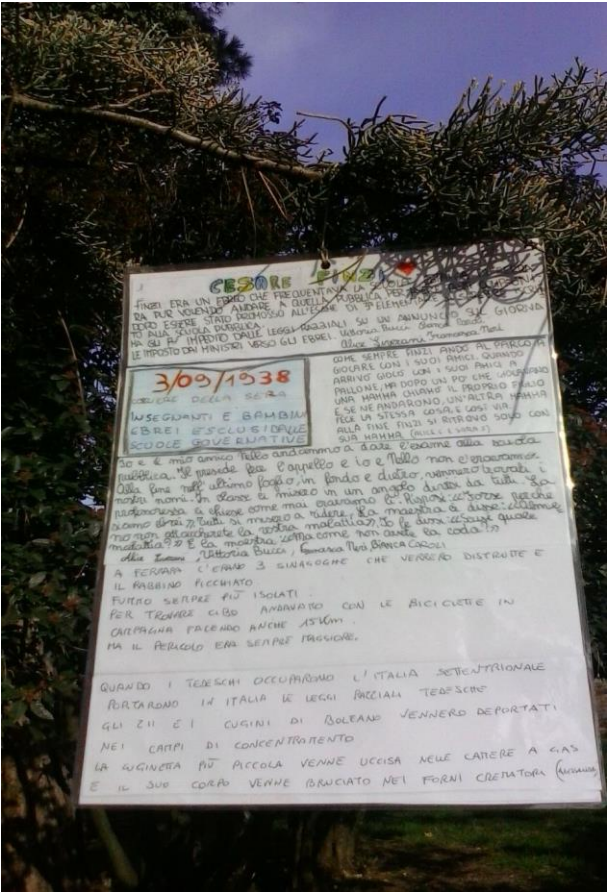 CESARE FINZI
FINZI ERA UN EBREO CHE FREQUENTAVA LA SCUOLA
RA PUR VOLENDO ANDARE A QUELLA PUBBLICA PER
DOPO ESSERE STATO PROMOSSO ALL'ESAME DI 5ª ELEMENTARE
TO ALLA SCUOLA PUBBLICA.
HA GLI FU IMPEDITO DALLE LEGGI RAZZIALI SU UN ANNUNCIO SUL GIORNA
LE IMPOSTO DAI MINISTRI VERSO GLI EBREI. Vittoria Bucci Bianca Caroli
Alice Francesca Neri
3/09/1938
CORRIERE DELLA SERA
INSEGNANTI E BAMBINI
EBREI ESCLUSI DALLE
SCUOLE GOVERNATIVE
COME SEMPRE FINZI ANDÒ AL PARCO A
GIOCARE CON I SUOI AMICI, QUANDO
ARRIVÒ GIOCÒ CON I SUOI AMICI A
PALLONE, MA DOPO UN PO' CHE GIOCAVANO
UNA MAMMA CHIAMÒ IL PROPRIO FIGLIO
E SE NE ANDARONO, UN'ALTRA MAMMA
FECE LA STESSA COSA, E COSÌ VIA.
ALLA FINE FINZI SI RITROVÒ SOLO CON
SUA MAMMA
Io e il mio amico Nello andammo a dare l'esame alla scuola
pubblica. Il preside fece l'appello e io e Nello non c'eravamo.
Alla fine nell'ultimo foglio, in fondo e dietro, vennero trovati i
nostri nomi. In classe ci misero in un angolo divisi da tutti. La
professoressa ci chiese come mai eravamo lì. Risposi: <<Forse perché
siamo ebrei>>. Tutti si misero a ridere. La maestra ci disse: <<Almeno
no non attaccherete la vostra malattia>>. Io le dissi: <<Scusi quale
malattia?>> E la maestra: <<Ma come non avete la coda!>>
Alice , Vittoria Bucci, Francesca Neri BIANCA CAROLI
A FERRARA C'ERANO 3 SINAGOGHE CHE VERRERO DISTRUTTE E
IL RABBINO PICCHIATO
FUMMO SEMPRE PIÙ ISOLATI.
PER TROVARE CIBO ANDAVAMO CON LE BICICLETTE IN
CAMPAGNA FACENDO ANCHE 15 Km.
MA IL PERICOLO ERA SEMPRE MAGGIORE.
QUANDO I TEDESCHI OCCUPARONO L'ITALIA SETTENTRIONALE
PORTARONO IN ITALIA LE LEGGI RAZZIALI TEDESCHE
GLI ZII E I CUGINI DI BOLZANO VENNERO DEPORTATI
NEI CAMPI DI CONCENTRAMENTO
LA CUGINETTA PIÙ PICCOLA VENNE UCCISA NELLE CAMERE A GAS
E IL SUO CORPO VENNE BRUCIATO NEI FORNI CREMATORI